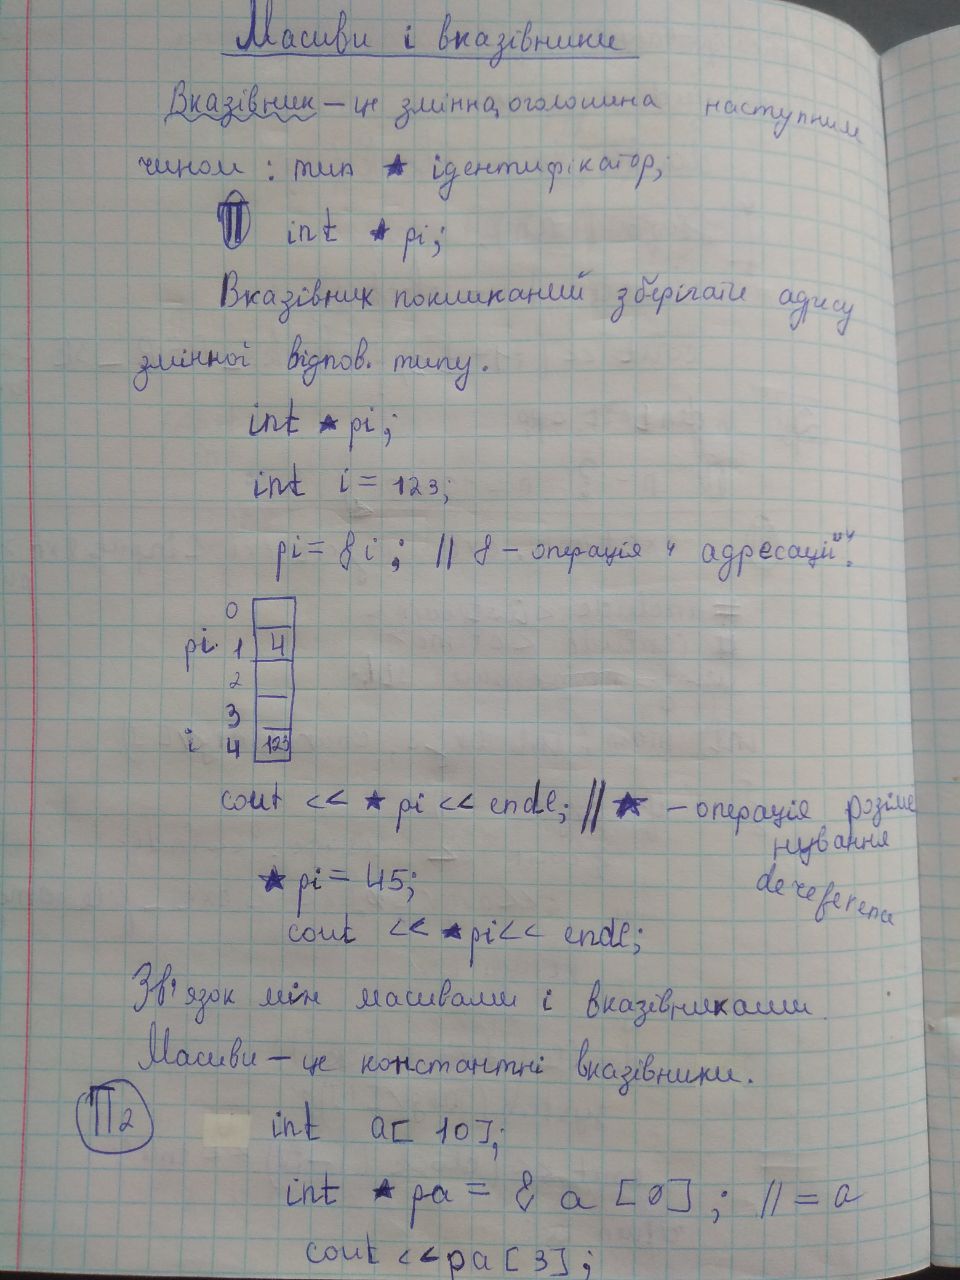 Масиви і вказівники
Вказівник – це змінна, оголошена наступним
чином : тип * ідентифікатор;
П int * pi;
Вказівник покликаний зберігати адресу
змінної відпов. типу.
int * pi;
int i = 123;
pi = & i ; // & – операція "адресації".
0
pi 1 4
2
3
i 4 123
cout << * pi << endl; // * – операція розіме
нування
* pi = 45;
cout << * pi << endl;
Зв'язок між масивами і вказівниками.
Масиви – це константні вказівники.
П2 int a[ 10 ];
int * pa = & a [0] ; // = a
cout << pa [ 3 ] ;